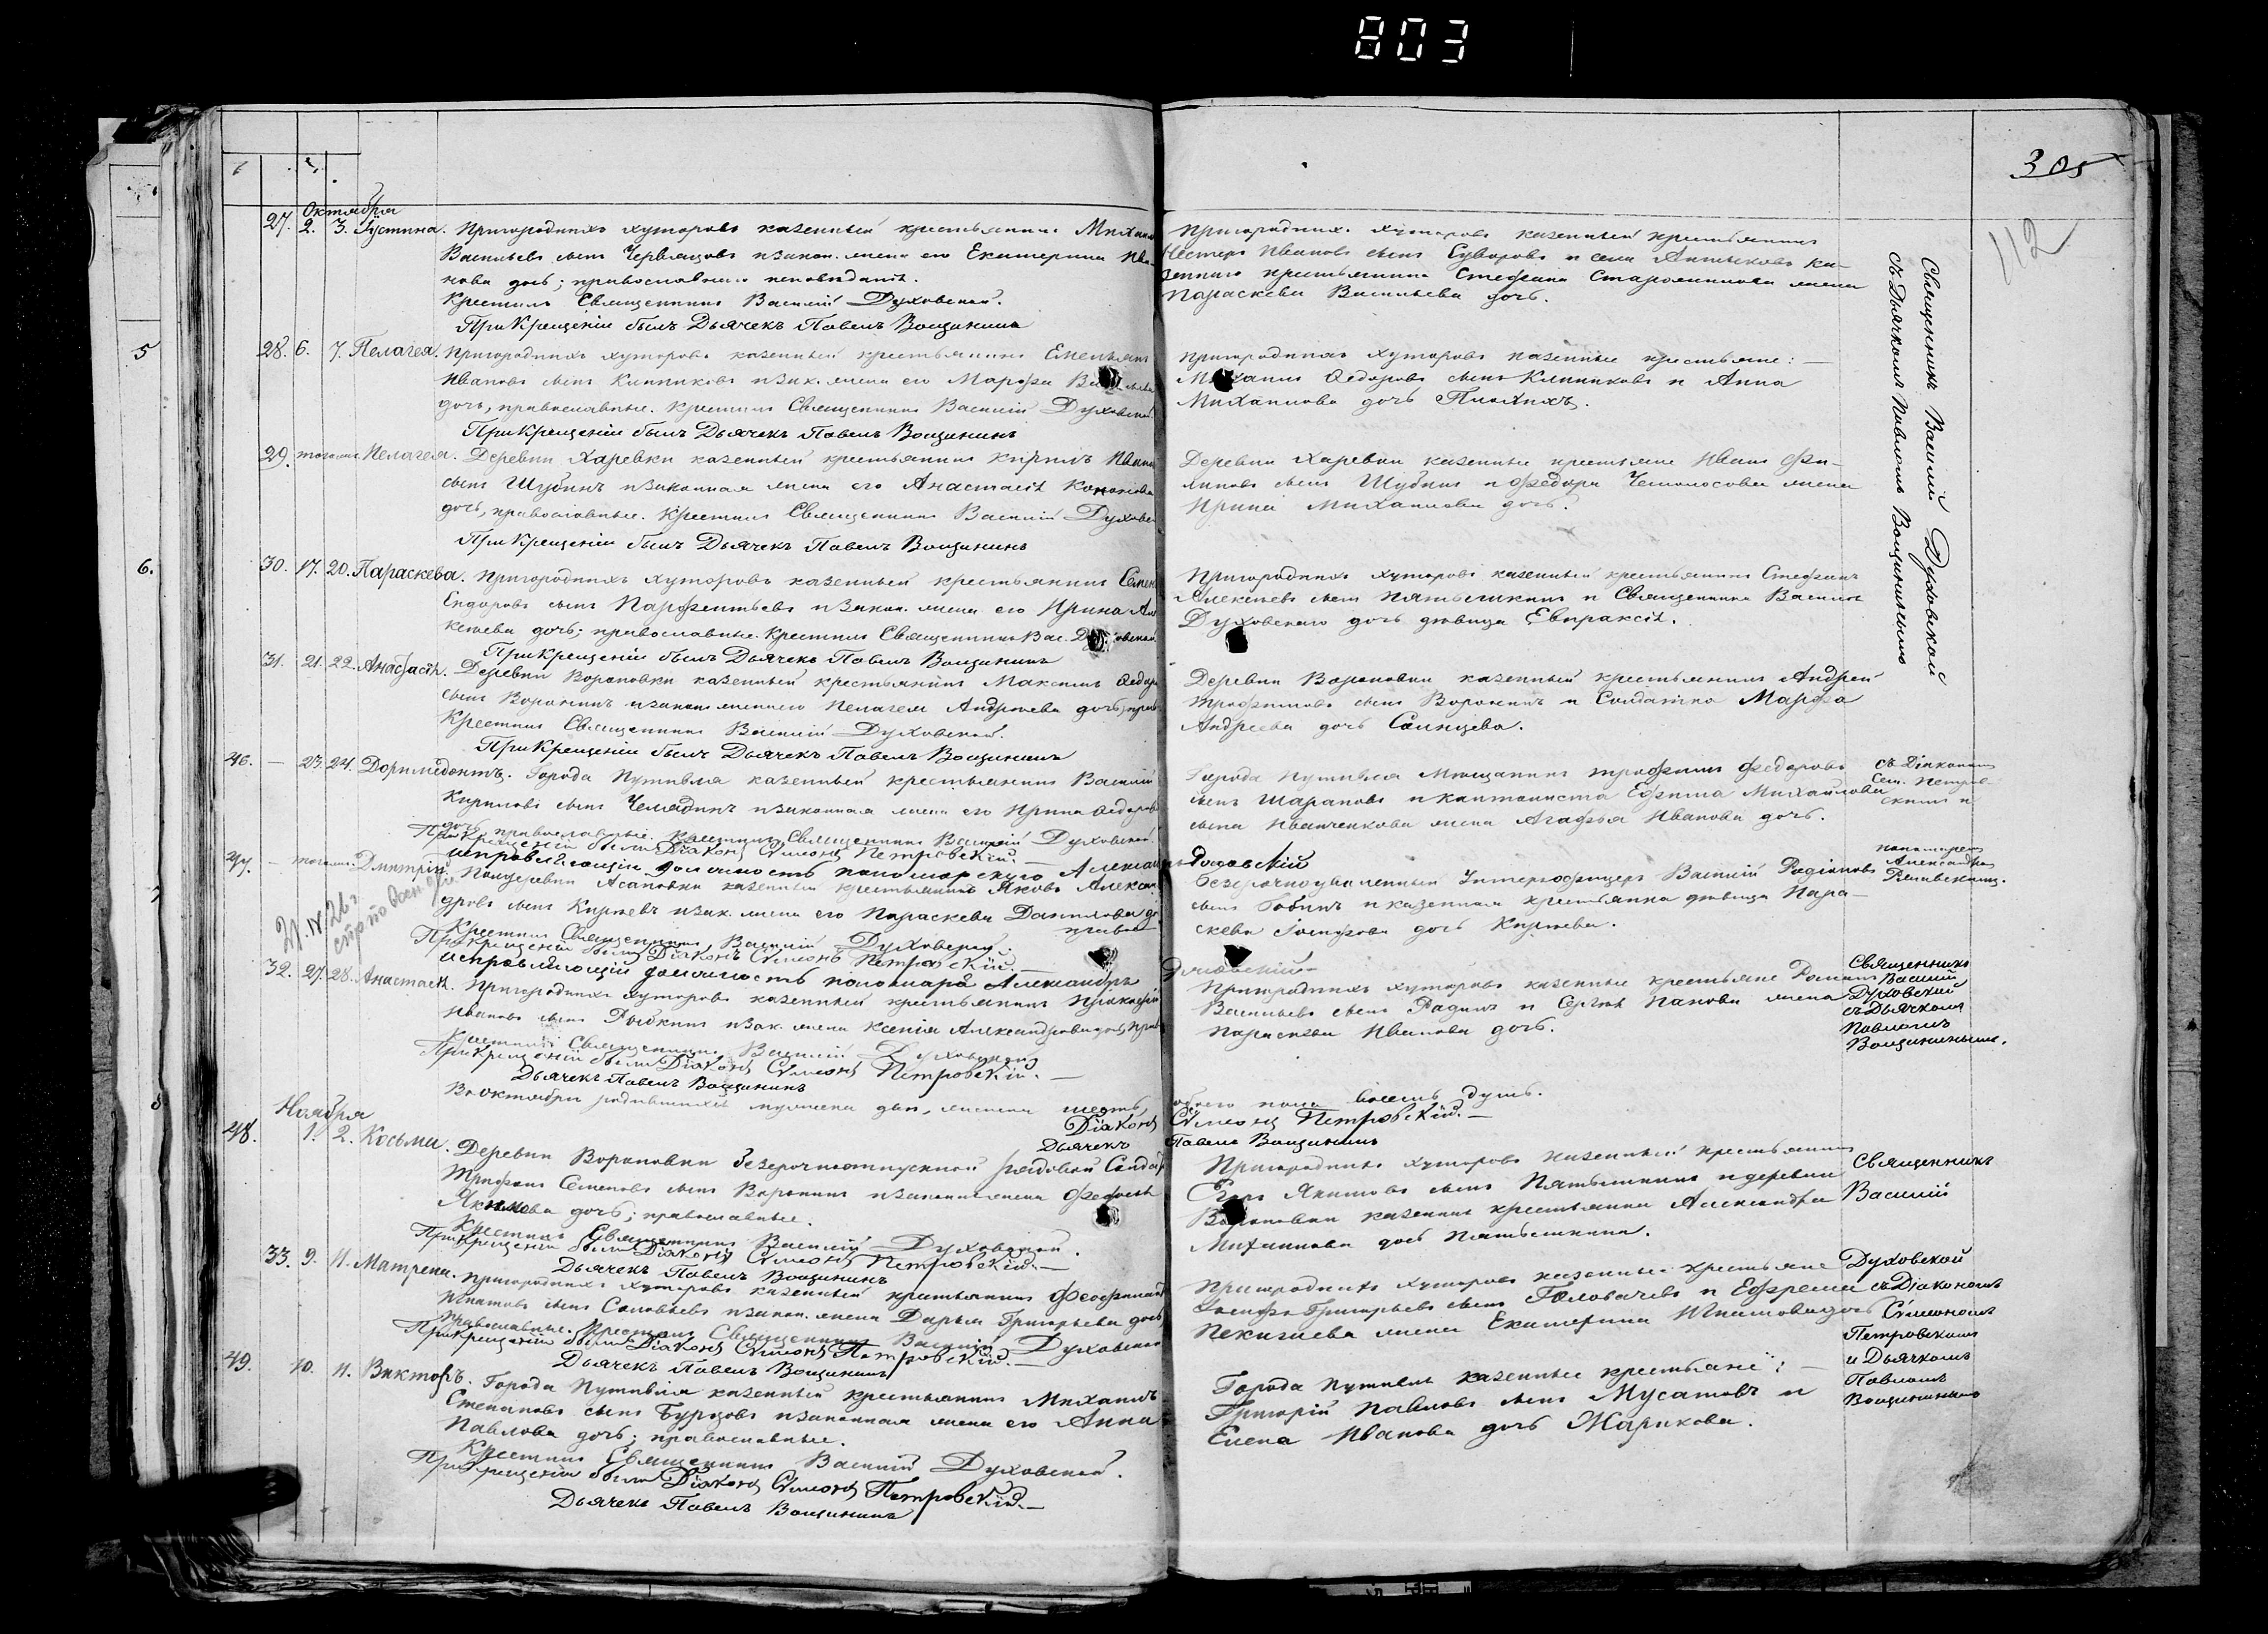 803
305
112
Октября
27. 2. 3. Іустина. Пригородныхъ хуторовъ казенный крестьянинъ Михаилъ
Васильевъ сынъ Червяцовъ и закон. жена его Екатерина Ива-
нова дочь; православнаго исповѣданія.
Крестилъ Священникъ Василій Духовской.
При Крещеніи былъ Дьячекъ Павелъ Вощининъ
Пригородныхъ хуторовъ казенный крестьянинъ
Нестеръ Ивановъ сынъ Суворовъ и села Антыковъ ка-
зеннаго крестьянина Стефана жена
Параскева Васильева дочь.
Священникъ Василій Духовской
съ Дьячкомъ Павломъ Вощининымъ
5
28. 6. 7. Пелагея. Пригородныхъ хуторовъ казенный крестьянинъ Емельянъ
Ивановъ сынъ Клинниковъ и зак. жена его Марфа
дочь, православные. Крестилъ Священникъ Василій Духовской.
При Крещеніи былъ Дьячекъ Павелъ Вощининъ
Пригородныхъ хуторовъ казенные крестьяне:
Михаилъ Ѳедоровъ сынъ Клинниковъ и Анна
Михаилова дочь Плохихъ.
29. тогоже. Пелагея. Деревни Харевки казенный крестьянинъ Кирилъ Ивановъ
сынъ Шубинъ и законная жена его Анастасія Кононова
дочь, православные. Крестилъ Священникъ Василій Духовской
При Крещеніи былъ Дьячекъ Павелъ Вощининъ
Деревни Харевки казенные крестьяне Иванъ Фи-
липовъ сынъ Шубинъ и Федора Чемолосова жена
Ирина Михаилова дочь.
6.
30. 17. 20. Параскева. Пригородныхъ хуторовъ казенный крестьянинъ Семенъ
Ендоровъ сынъ Парфентьевъ и закон. жена его Ирина Але-
ксѣева дочь; православные. Крестилъ Священникъ Вас. Духовской.
При Крещеніи былъ Дьячекъ Павелъ Вощининъ
Пригородныхъ хуторовъ казенный крестьянинъ Стефанъ
Алексѣевъ сынъ Пятышкинъ и Священника Василія
Духовскаго дочь дѣвица Евпраксія.
31. 21. 22. Анастасія. Деревни Вороновки казенный крестьянинъ Максимъ Ѳедоровъ
сынъ Воронинъ и закон. жена его Пелагея Андреева дочь, прав.
Крестилъ Священникъ Василій Духовской.
При Крещеніи былъ Дьячекъ Павелъ Вощининъ
Деревни Вороновки казенный крестьянинъ Андрей
Трофимовъ сынъ Воронинъ и Солдатка Марфа
Андреева дочь Солнцева.
46. — 23. 24. Доримедонтъ. Города Путивля казенный крестьянинъ Василій
Кириловъ сынъ Челядинъ и законная жена его Ирина Ѳедорова
дочь, православные. Крестилъ Священникъ Василій Духовской.
При Крещеніи были Діаконъ Сѵмеонъ Петровскій. —
исправляющій должность пономарскую Александръ
Города Путивля Мѣщанинъ Трофимъ Федоровъ
сынъ Шараповъ и кантониста Ефима Михайлова
сына Иванченкова жена Агафья Иванова дочь.
съ Діакономъ
Сим. Петров-
скимъ и
пономаремъ
Александромъ
47. — тогоже. Дмитрій. Асановки казенный крестьянинъ Яковъ Алексан-
дровъ сынъ Киржевъ и зак. жена его Параскева Данилова до.
православ.
Крестилъ Священникъ Василій Духовской.
При Крещеніи были Діаконъ Сѵмеонъ Петровскій. —
исправляющій должность пономаря Александръ
безсрочноуволенный Унтерофицеръ Василій Родіоновъ
сынъ Гобинъ и казенная крестьянка дѣвица Пара-
скева Іосифова дочь Киржева.
32. 27. 28. Анастасія. Пригородныхъ хуторовъ казенный крестьянинъ Прокофій
Ивановъ сынъ Рыбкинъ и зак. жена Ксенія Александрова дочь, прав.
Крестилъ Священникъ Василій Духовской
При Крещеніи были Діаконъ Сѵмеонъ Петровскій. —
Дьячекъ Павелъ Вощининъ
Пригородныхъ хуторовъ казенные крестьяне Романъ
Васильевъ сынъ Радинъ и Сергія Панова жена
Параскева Иванова дочь.
Священникъ
Василій
Духовской
съ Дьячкомъ
Павломъ
Вощининымъ.
Въ октябрѣ родившихся мужеска два, женска шесть, обоего пола восемь душъ.
Діаконъ Сѵмеонъ Петровскій. —
Дьячекъ Павелъ Вощининъ
Ноября
48. 1. 2. Косьма. Деревни Вороновки безсрочноотпускной рядовой Солдатъ
Трифонъ Семеновъ сынъ Воронинъ и законная жена Феодосія
Якимова дочь; православные.
Крестилъ Священникъ Василій Духовской.
При Крещеніи были Діаконъ Сѵмеонъ Петровскій. —
Дьячекъ Павелъ Вощининъ
Пригородныхъ хуторовъ казенный крестьянинъ
Егоръ Якимовъ сынъ Пятышкинъ и деревни
Вороновки казенная крестьянка Александра
Михаилова дочь Пятышкина.
Священникъ
Василій
33. 9. 11. Матрена. Пригородныхъ хуторовъ казенный крестьянинъ Феофилактъ
Игнатовъ сынъ Соловьевъ и закон. жена Дарья Григорьева дочь,
православные. Крестилъ Священникъ Василій Духовской
При Крещеніи были Діаконъ Сѵмеонъ Петровскій. —
Дьячекъ Павелъ Вощининъ
Пригородныхъ хуторовъ казенные крестьяне
Іосифъ Григорьевъ сынъ Головачевъ и Ефрема
жена Екатерина Игнатова дочь
Духовской
съ Діакономъ
Сѵмеономъ
Петровскимъ
и Дьячкомъ
Павломъ
Вощининымъ
49. 10. 11. Викторъ. Города Путивля казенный крестьянинъ Михаилъ
Степановъ сынъ Бурцовъ и законная жена его Анна
Павлова дочь; православные.
Крестилъ Священникъ Василій Духовской.
При Крещеніи были Діаконъ Сѵмеонъ Петровскій. —
Дьячекъ Павелъ Вощининъ
Города Путивля казенные крестьяне: —
Григорій Павловъ сынъ Мусатовъ и
Елена Иванова дочь Жарикова.